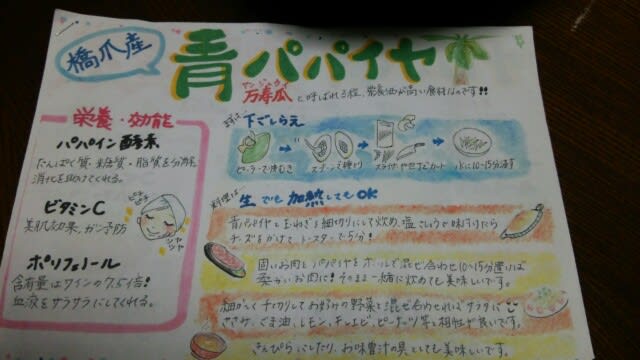 橋爪産
青パパイヤ
万寿瓜と呼ばれる程、栄養価が高い食材なのです!!
栄養・効能
パパイン酵素
たんぱく質・糖質・脂質を分解
消化を助けてくれる。
ビタミンC
美肌効果、ガン予防
ポリフェノール
含有量はワインの7.5倍!
血液をサラサラにしてくれる。
まずは下ごしらえ
ピーラーで皮むき
スプーンで種とり
スライサーや包丁でカット
水に10~15分浸す
料理は…生でも加熱してもOK
青パパイヤと玉ねぎを細切りにして炒め、塩こしょうで味付けたら
チーズをかけて、トースターで5分!
固いお肉とパパイヤをボールで混ぜ合わせ10~15分置けば
柔らかいお肉に!そのまま一緒に炒めても美味しいです。
細かく千切りしてお好みの野菜と混ぜ合わせればサラダに
ささみ、ごま油、レモン、干しエビ、ピーナッツ等と相性が良いです。
きんぴらにしたり、お味噌汁の具としても美味しいです。